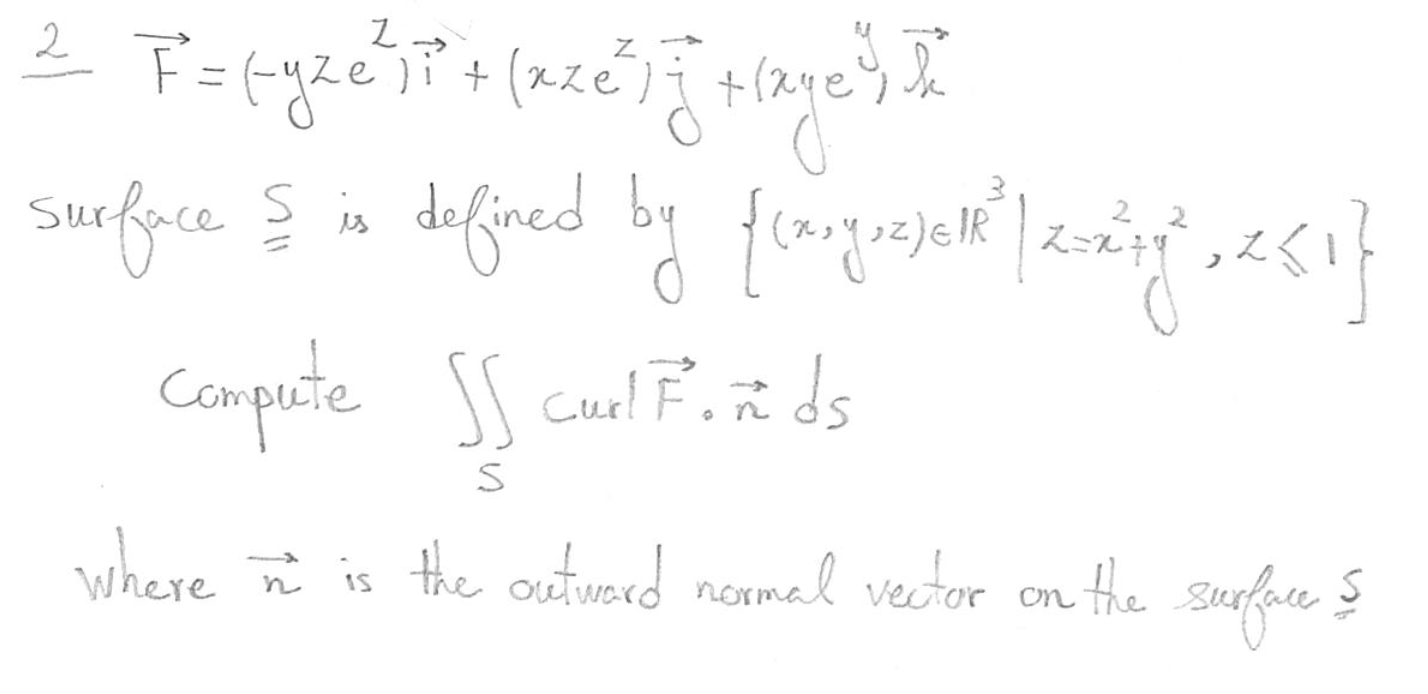 2 F⃗ = (-yze^z) i⃗ + (xze^z) j⃗ + (xye^y) k⃗
surface S is defined by {(x,y,z)∈ℝ³ | z=x²+y², z≤1}
Compute ∬_S curl F⃗ . n⃗ ds
where n⃗ is the outward normal vector on the surface S